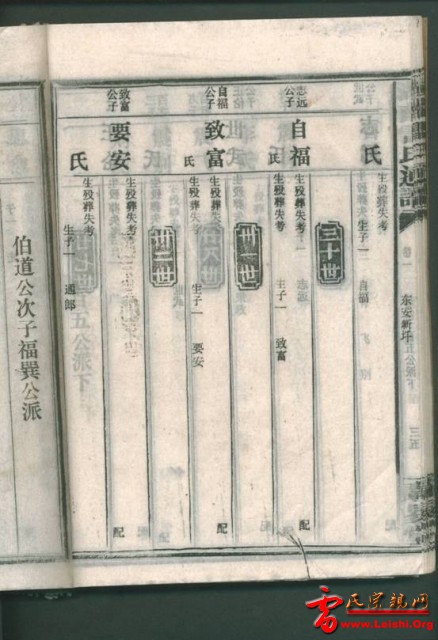 氏通譜
卷一
东安新圩
三五
氏
生殁葬失考
生子一
自福
三十世
志远公子
自福
生殁葬失考
配
氏
生子一
致富
卅一世
自福公子
致富
生殁葬失考
配
氏
生子一
要安
卅二世
致富公子
要安
生殁葬失考
配
氏
生子一
通郎
伯道公次子福巽公派
雷氏宗親网
www.Leishi.Org